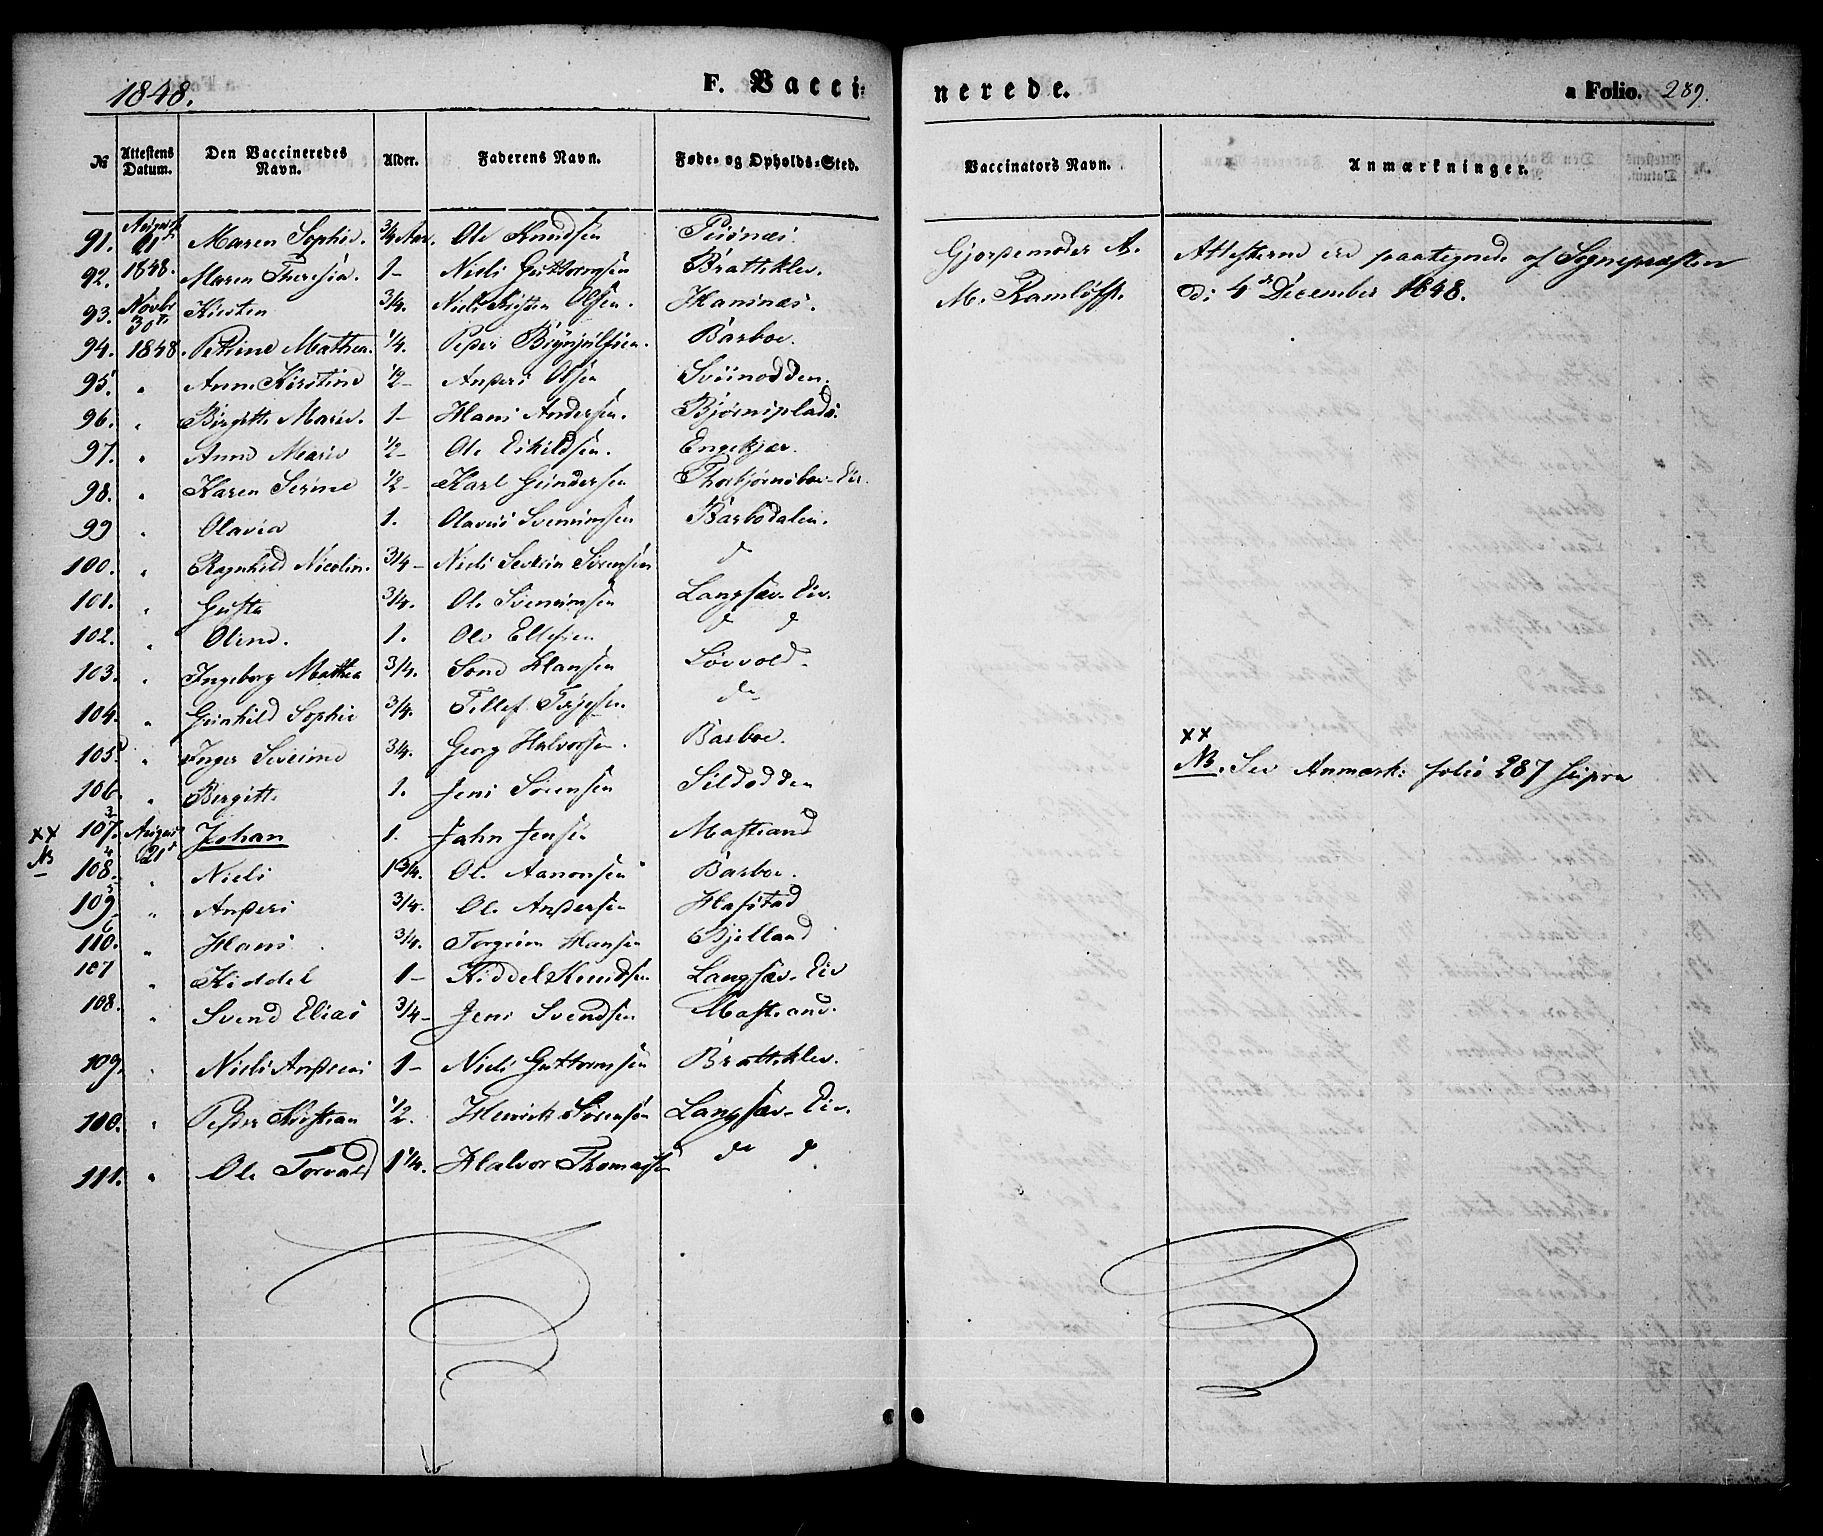 1848.
F. Vacci=
nerede.
a Folio. 289.
№ Attestens Datum. Den Vaccineredes Navn. Alder. Faderens Navn. Føde- og Opholds-Sted. Vaccinators Navn. Anmærkninger.
91. August 21d Maren Sophie. 3/4 Aar. Ole Knudsen
Gjordemoder A. Attesterne ere paategnede af Sognepræsten
92. 1848. Maren Theresia. 1- Niels Guttormsen Bratteklev.
M. Ramløffs. d: 4de December 1848.
93. Novbr 30te Kirsten 3/4. Niels Olsen.
94. 1848. Petrine Mathea. 1/4. Peder Barboe.
95. " Anne Kirstine 1/2- Anders Olsen Sviinodden.
96. " Birgitte Marie. 1- Hans Andersen. Bjørnsplads.
97. " Anne Marie 1/2- Ole Eskildsen. Engekjær.
98. " Karen Serine 1/2- Karl Gundersen Thorbjørnsboe-Eie.
99 " Olavia 1. Olaves Svennungsen Barbodalen.
100. " Ragnhild Nicolin. 3/4- Niels Severin Sørensen d
101. " Gusta 3/4. Ole Svennungsen Langsæv. Eie.
102. " Oline. 1. Ole Ellefsen d d
103. " Ingeborg Mathea 3/4. Hansen Løvvold.
104. " Gunhild Sophie 3/4. Tellef Terjesen. do
105. " Inger Severine 3/4. Georg Halvorsen. Barboe.
xx
NB. See Anmærk: folio 287 supra
106. " Bergitte 1. Jens Sørensen Sildodden
xx 3 107. August Johan 1. Jahn Jensen Mastrand
NB 4 108. 21d Niels 1 3/4. Ole Aanonsen Barboe.
5 109. " Anders 3/4. Ole Andersen Hafstad
6 110. " Hans. 3/4. Torgrim Hansen Bjelland
107 " Kiddel 1- Kiddel Knudsen Langsæv. Eie
108. " Svend Elias 3/4- Jens Svendsen Mastrand.
109. " Niels Andreas 1- Niels Guttormsen Bratteklev.
110. " Peder Kristian 1/2. Henrik Sørensen Langsæv. Eie.
111. " Ole Torvald 1 1/4. Halvor Thomassen do d